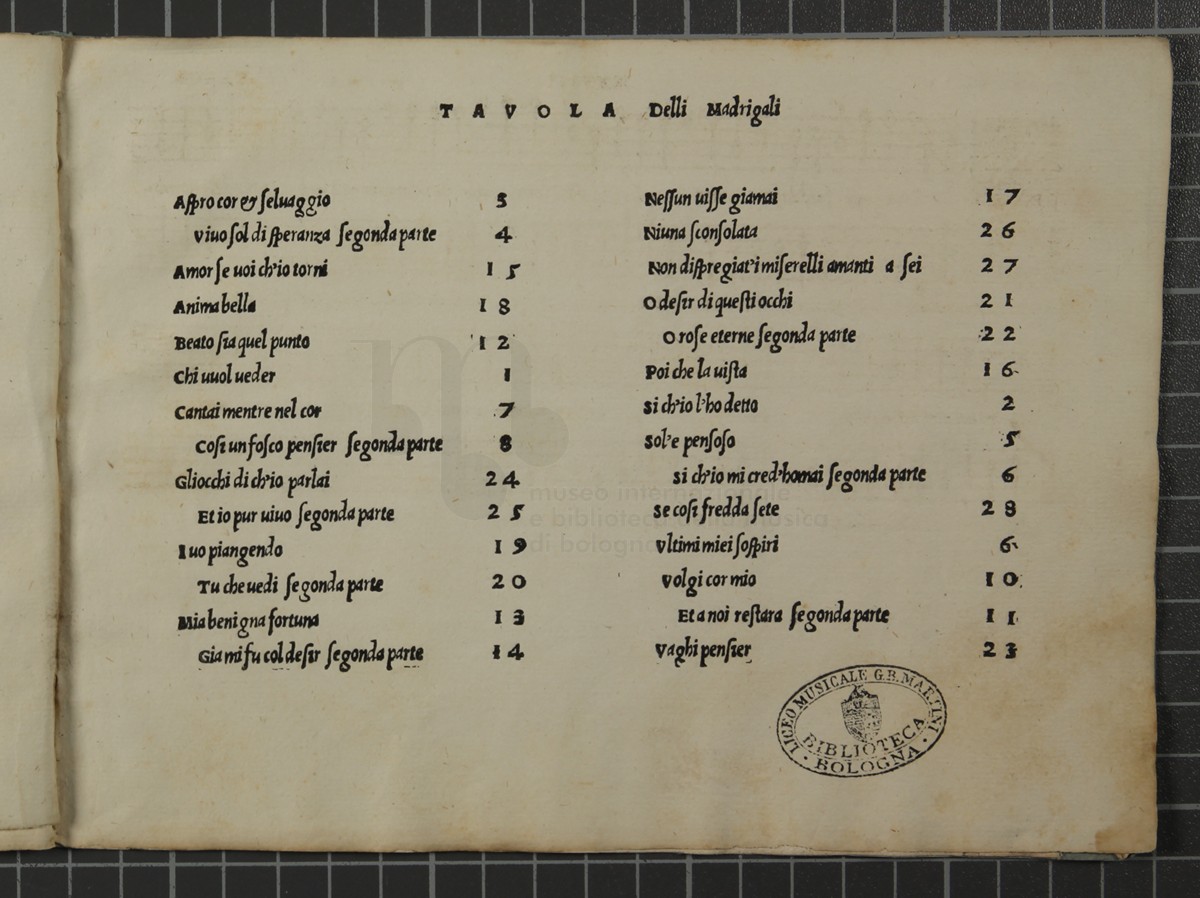 TAVOLA Delli Madrigali
Aspro cor & seluaggio 3
Viuo sol di speranza segonda parte 4
Amor se uoi ch'io torni 15
Anima bella 18
Beato sia quel punto 12
Chi uuol ueder 1
Cantai mentre nel cor 7
Cosi un fosco pensier segonda parte 8
Gliocchi di ch'io parlai 24
Et io pur uiuo segonda parte 25
I uo piangendo 19
Tu che uedi segonda parte 20
Mia benigna fortuna 13
Gia mi fu col desir segonda parte 14
Nessun uisse giamai 17
Niuna sconsolata 26
Non dispregiat'i miserelli amanti a sei 27
O desir di questi occhi 21
O rose eterne segonda parte 22
Poi che la uista 16
Si ch'io l'ho detto 2
Sol'e pensoso 5
Si ch'io mi cred'homai segonda parte 6
Se cosi fredda sete 28
Vltimi miei sospiri 6
Volgi cor mio 10
Et a noi restara segonda parte 11
Vaghi pensier 23
LICEO MUSICALE G.B. MARTINI
BIBLIOTECA
BOLOGNA
museo internazionale
e biblioteca della musica
di bologna